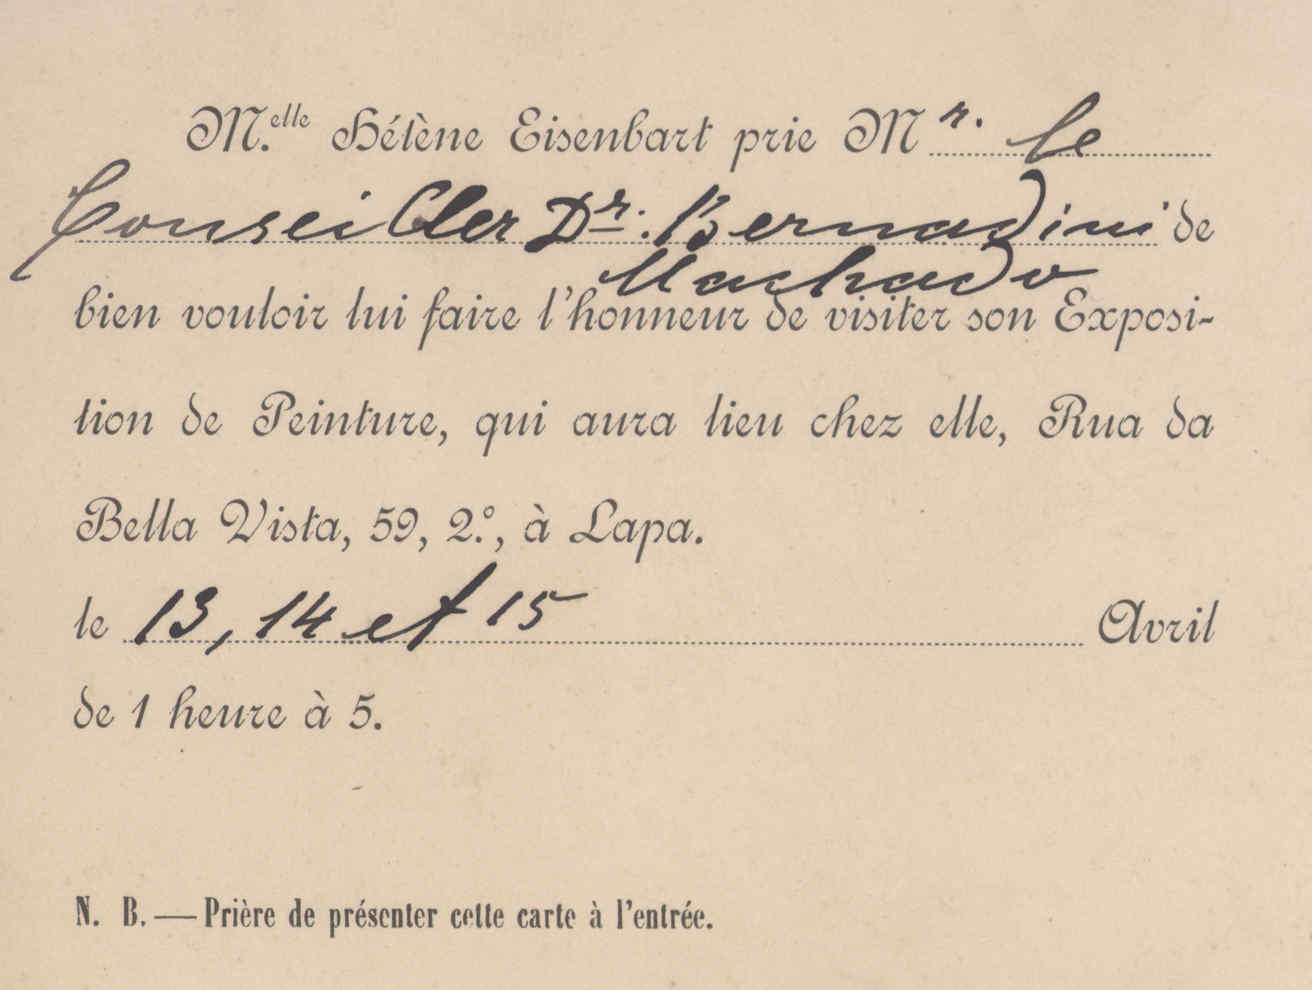 M.elle Hélène Eisenbart prie Mr. le
Conseiller Dr. Bernadini de
Machado
bien vouloir lui faire l'honneur de visiter son Exposi-
tion de Peinture, qui aura lieu chez elle, Rua da
Bella Vista, 59, 2.º, à Lapa.
le 13, 14 et 15 Avril
de 1 heure à 5.
N. B. — Prière de présenter cette carte à l'entrée.